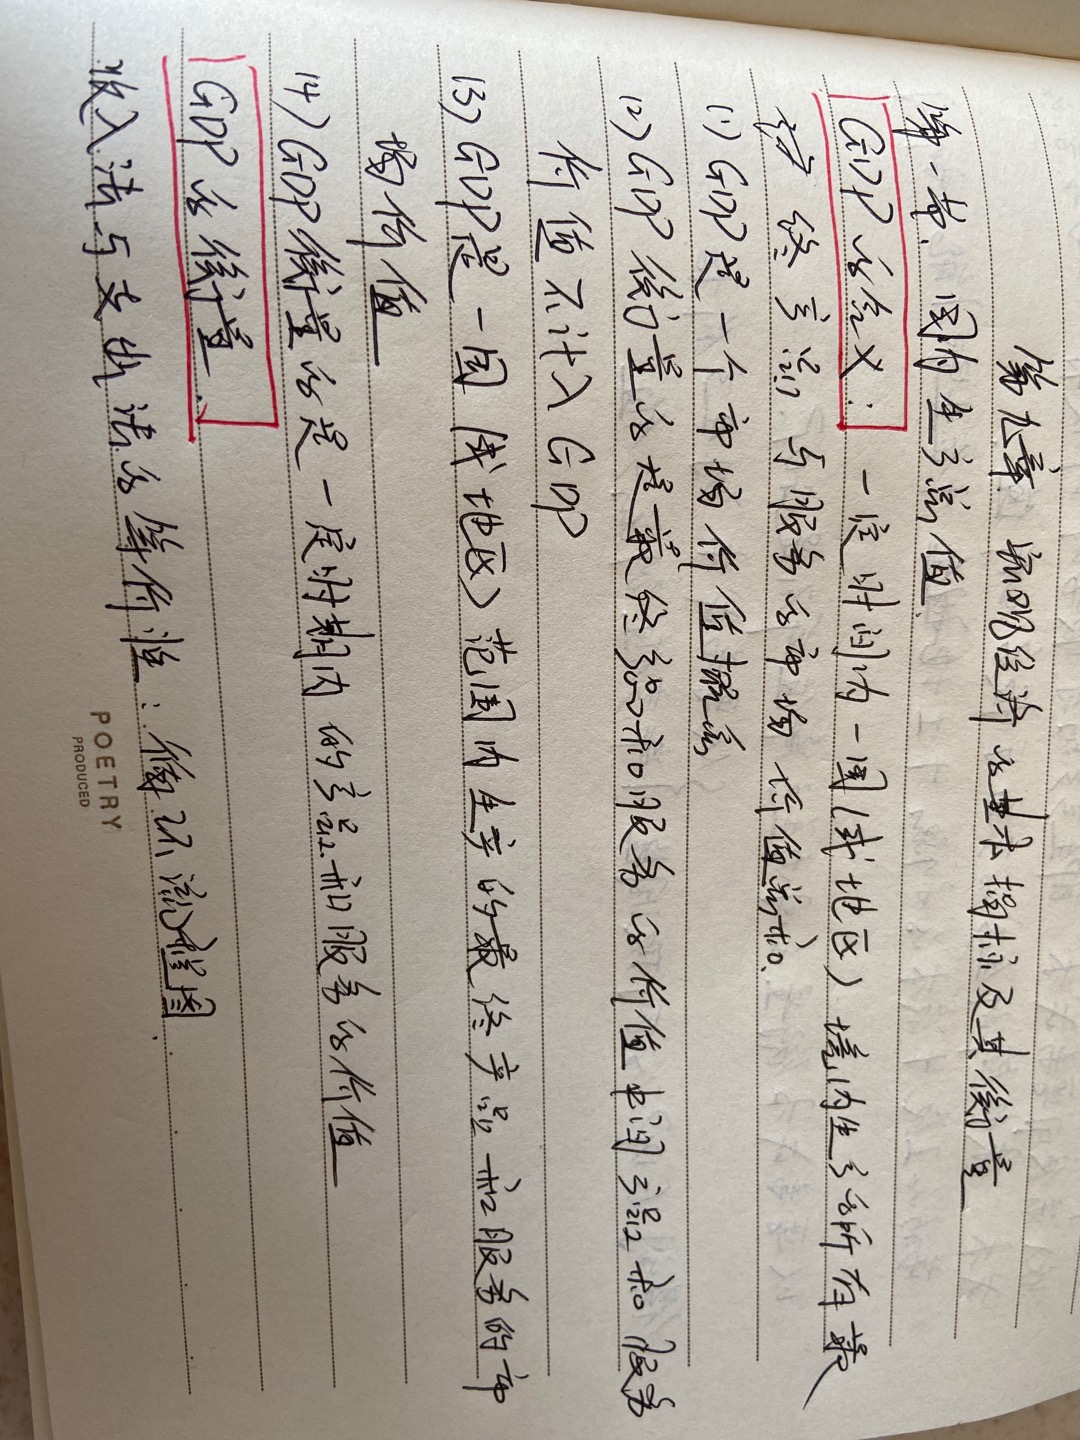 第九章 宏观经济的基本指标及其衡量
第一节、国内生产总值
GDP的含义: 一定时间内一国(或地区)境内生产的所有最
终产品与服务的市场价值总和.
(1) GDP是一个市场价值概念
(2) GDP衡量的是最终产品和服务的价值中间产品和服务
价值不计入GDP
(3) GDP是一国(或地区)范围内生产的最终产品和服务的市
场价值
(4) GDP衡量的是一定时期内的产品和服务的价值
GDP的衡量:
收入法与支出法的等价性: 循环流程图
POETRY
PRODUCED